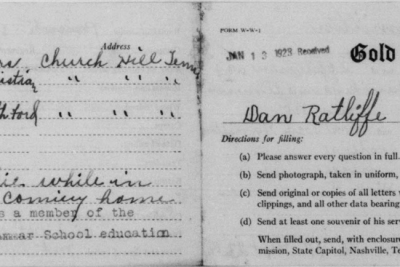 Address
Church Hill Tenn
" " "
" " "
while in
coming home
a member of the
School education
FORM W-W-1
JAN 13 1923 Received
Gold
Dan Ratliffe
Directions for filing:
(a) Please answer every question in full.
(b) Send photograph, taken in uniform,
(c) Send original or copies of all letters
clippings, and all other data bearing
(d) Send at least one souvenir of his ser
When filled out, send, with enclosure
mission, State Capitol, Nashville, Te